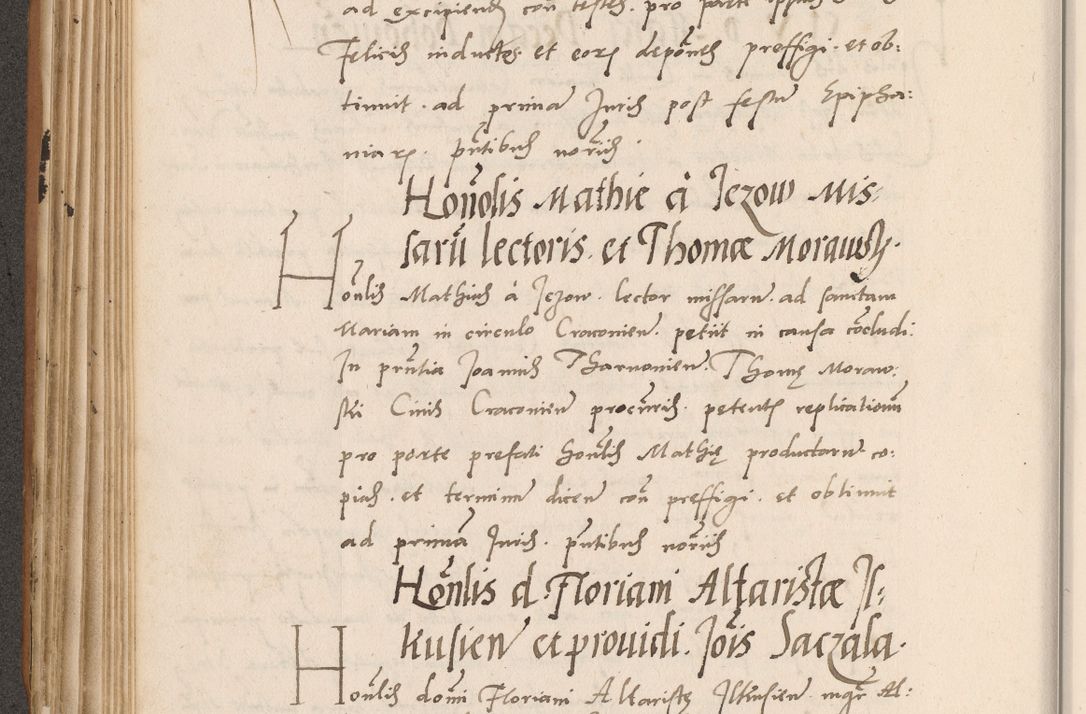 ad excipiend con testes pro parte
Felicis inductos et eorum deponēs preffigi. et ob:
tinuit. ad primā Juris post festū Epipha:
niarum. pñtibus noriis
Honōlis Mathie à Jezow Mis:
sarū lectoris. et Thomæ Morawsky.
Honlis Mathias à Jezow. lector missarū. ad sanctam
Mariam in circulo Cracovien. petiit in causa cōcludi.
In pñtia Joannis Tharnovien. Thomę Moraw:
ski Civis Cracovien procuris. petentis replicationum
pro parte prefati honlis Mathię productarū co:
pias. et terminū dicen con preffigi. et obtinuit
ad primā Juris. pñtibus noriis
Honlis d. Floriani Altaristæ Il:
kusien et providi. Joīs Saczala.
Honlis domī Floriani Altaristę Ilkusien. Al: